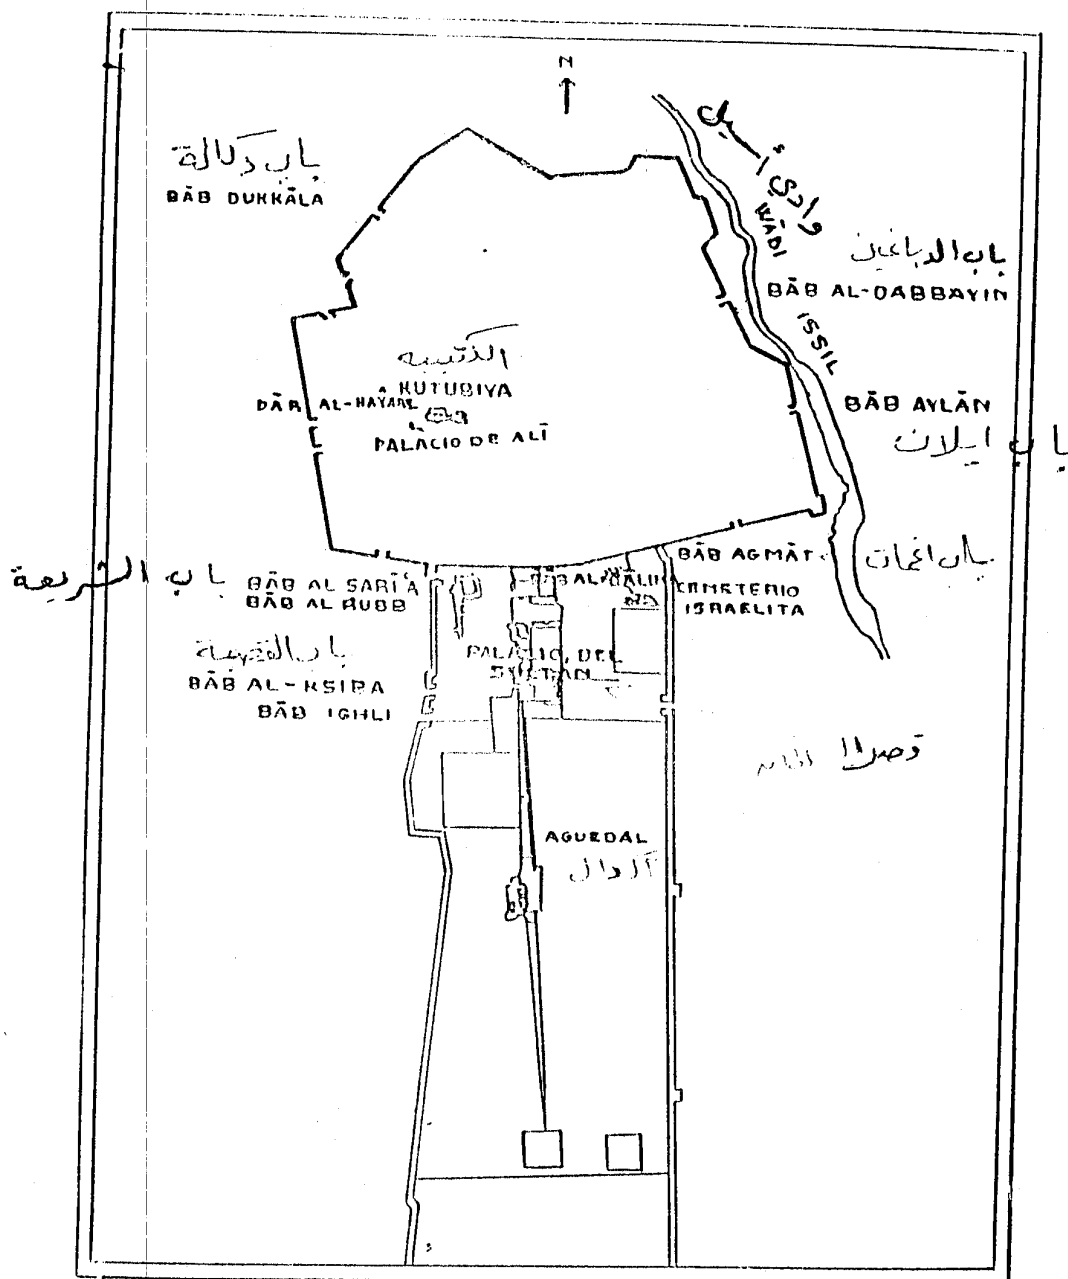 N
وادي أسيل
باب دكالة
BĀB DUKKĀLA
WĀDI ISSIL
باب الدباغين
BĀB AL-DABBAYIN
الكتبيه
KUTUBIYA
DĀR AL-HAŶAR
PALĀCIO DE ALĪ
BĀB AYLĀN
باب ايلان
BĀB AGMĀT
باب اغمات
باب الشريعة
BĀB AL SARĪ'A
BĀB AL RUBB
CEMETERIO
ISRAELITA
باب القصيبة
BĀB AL-KSIBA
BĀB IGHLI
PALACIO DEL
SULTAN
AGUEDAL